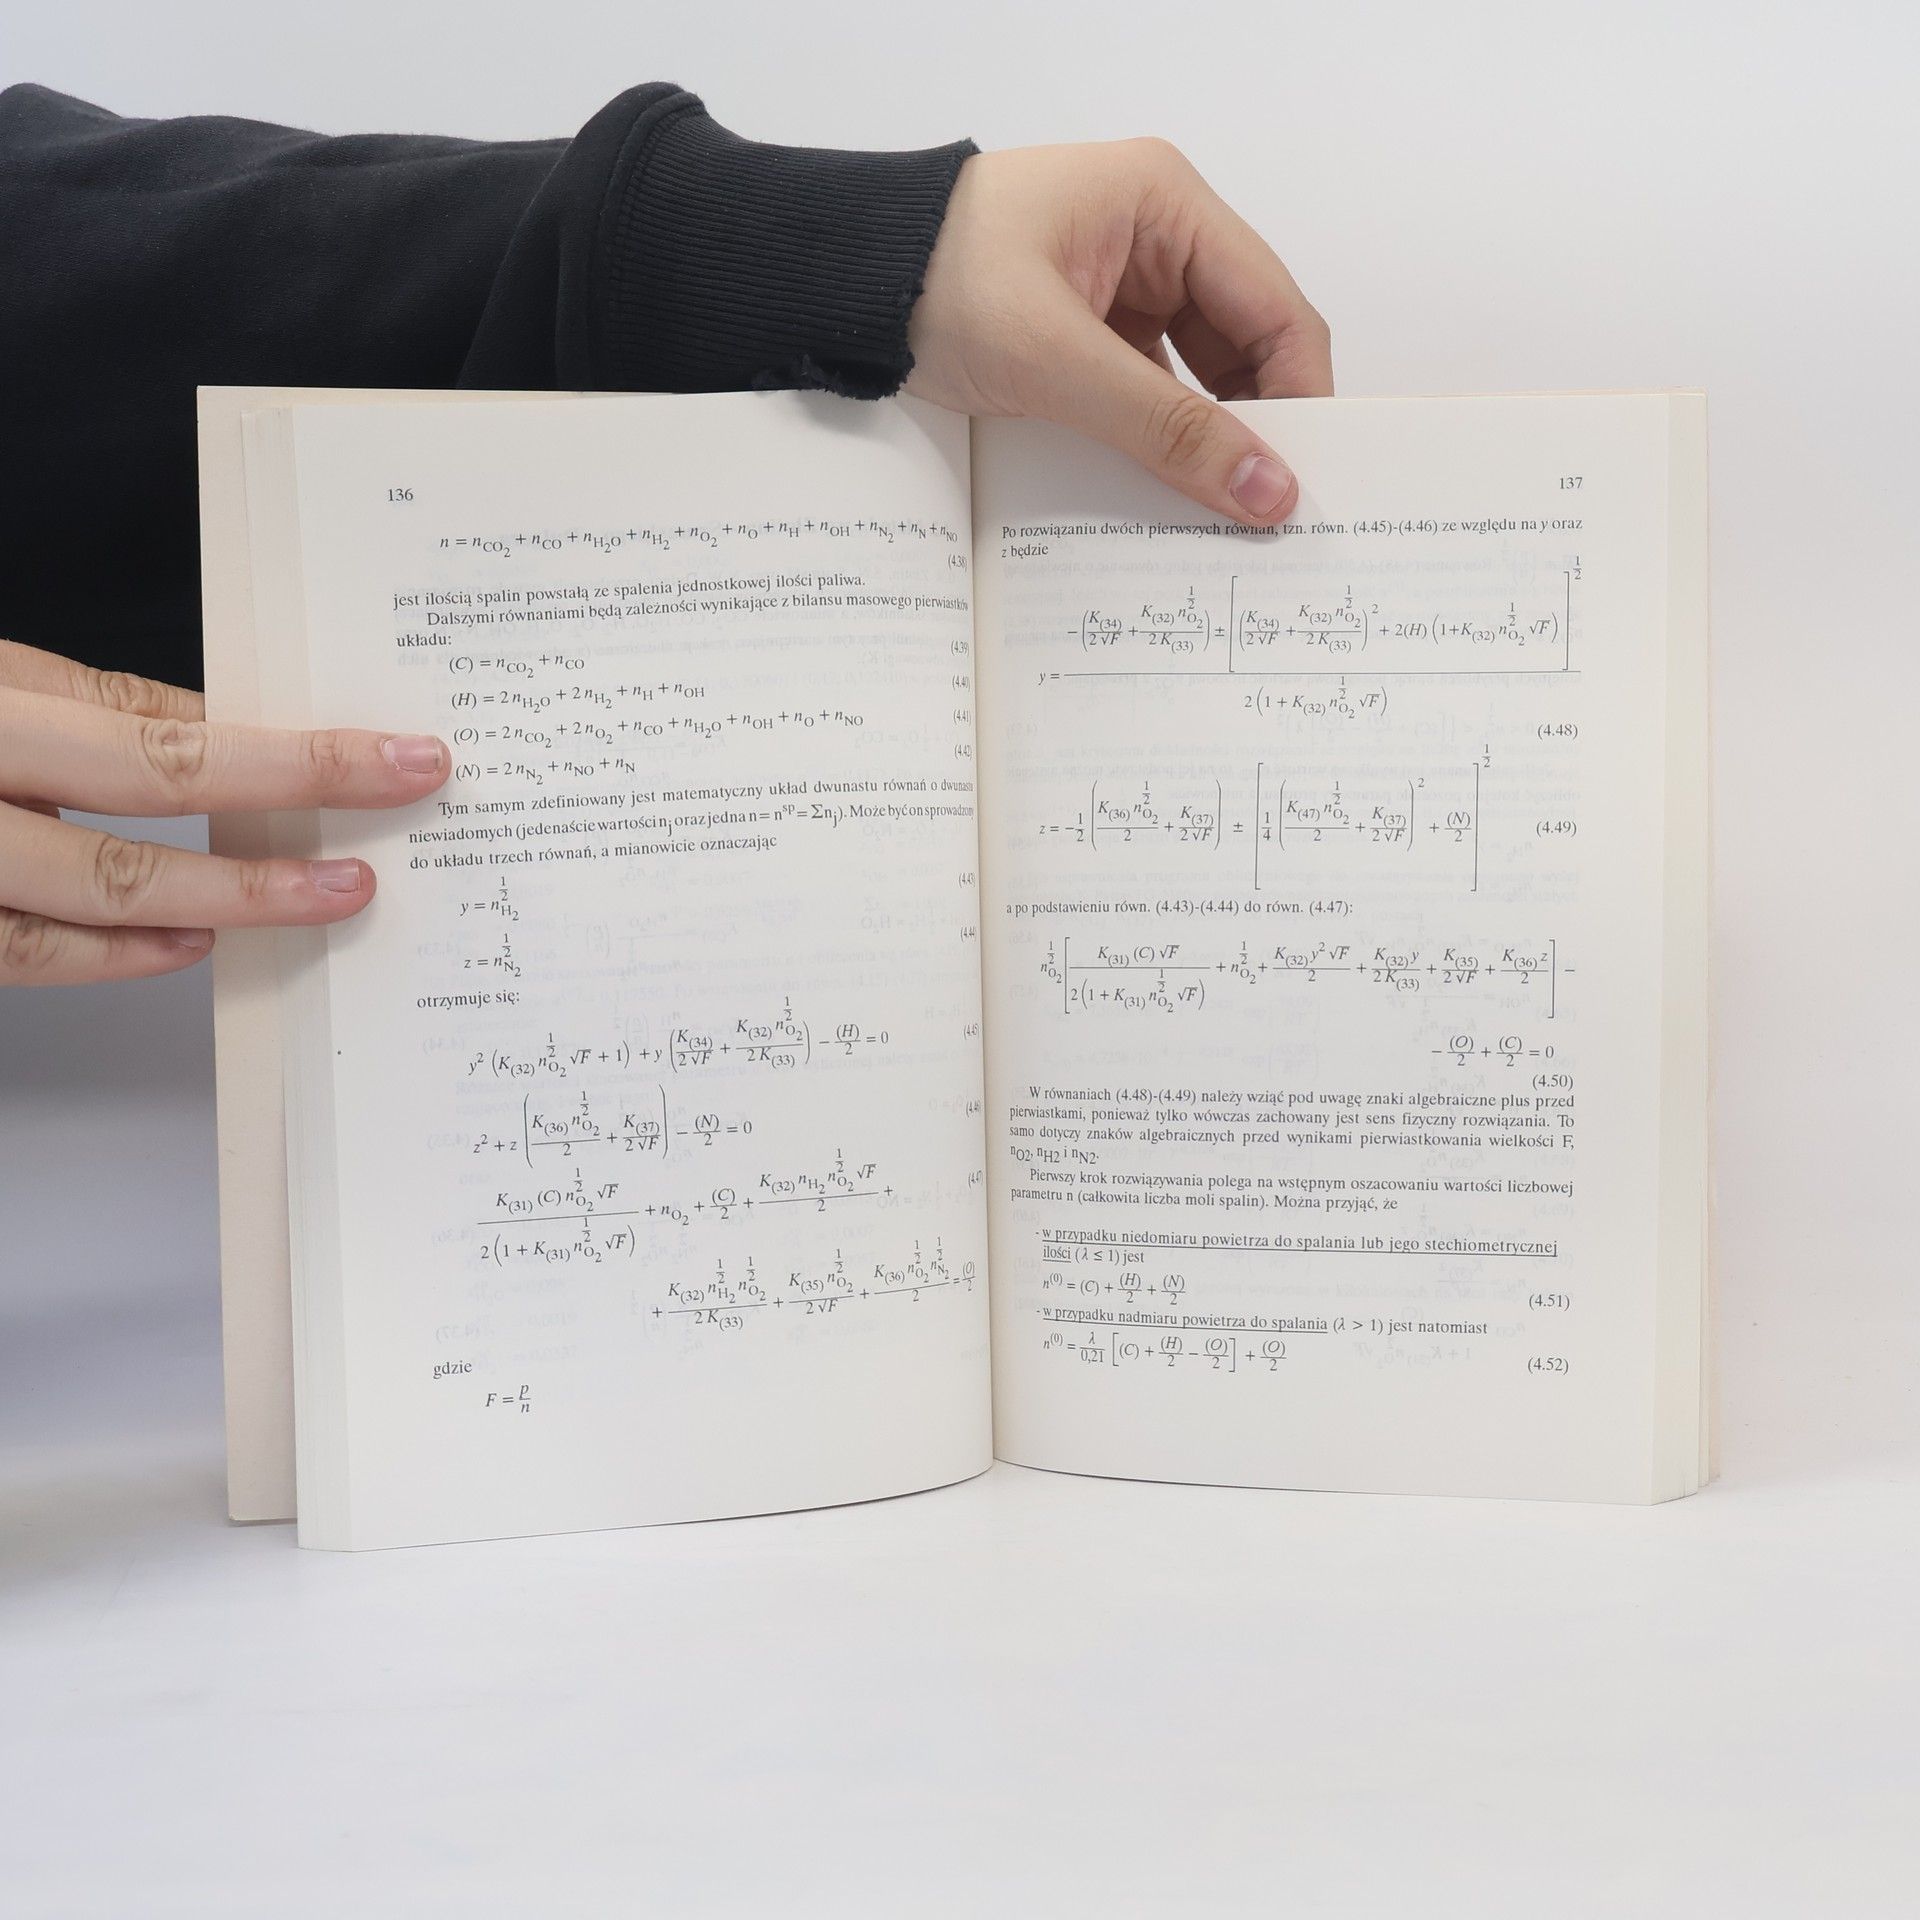 136
n = n_CO₂ + n_CO + n_H₂O + n_H₂ + n_O₂ + n_O + n_H + n_OH + n_N₂ + n_N + n_NO
(4.38)
jest ilością spalin powstałą ze spalenia jednostkowej ilości paliwa.
Dalszymi równaniami będą zależności wynikające z bilansu masowego pierwiastków
układu:
(C) = n_CO₂ + n_CO (4.39)
(H) = 2 n_H₂O + 2 n_H₂ + n_H + n_OH (4.40)
(O) = 2 n_CO₂ + 2 n_O₂ + n_CO + n_H₂O + n_OH + n_O + n_NO (4.41)
(N) = 2 n_N₂ + n_NO + n_N (4.42)
Tym samym zdefiniowany jest matematyczny układ dwunastu równań o dwunastu
niewiadomych (jedenaście wartości n_j oraz jedna n = n^sp = Σn_j). Może być on sprowadzony
do układu trzech równań, a mianowicie oznaczając
y = n_H₂^(1/2) (4.43)
z = n_N₂^(1/2) (4.44)
otrzymuje się:
y² (K_(32) n_O₂^(1/2) √F + 1) + y (K_(34)/(2 √F) + K_(32) n_O₂^(1/2)/(2 K_(33))) − (H)/2 = 0 (4.45)
z² + z (K_(36) n_O₂^(1/2)/2 + K_(37)/(2 √F)) − (N)/2 = 0 (4.46)
K_(31) (C) n_O₂^(1/2) √F/(2 (1 + K_(31) n_O₂^(1/2) √F)) + n_O₂ + (C)/2 + K_(32) n_H₂ n_O₂^(1/2) √F/2 + (4.47)
+ K_(32) n_H₂^(1/2) n_O₂^(1/2)/(2 K_(33)) + K_(35) n_O₂^(1/2)/(2 √F) + K_(36) n_O₂^(1/2) n_N₂^(1/2)/2 = (O)/2
gdzie
F = p/n
137
Po rozwiązaniu dwóch pierwszych równań, tzn. równ. (4.45)-(4.46) ze względu na y oraz
z będzie
y = (−(K_(34)/(2 √F) + K_(32) n_O₂^(1/2)/(2 K_(33))) ± [(K_(34)/(2 √F) + K_(32) n_O₂^(1/2)/(2 K_(33)))² + 2(H) (1+K_(32) n_O₂^(1/2) √F)]^(1/2))/(2 (1 + K_(32) n_O₂^(1/2) √F))
(4.48)
z = −1/2 (K_(36) n_O₂^(1/2)/2 + K_(37)/(2 √F)) ± [1/4 (K_(47) n_O₂^(1/2)/2 + K_(37)/(2 √F))² + (N)/2]^(1/2) (4.49)
a po podstawieniu równ. (4.43)-(4.44) do równ. (4.47):
n_O₂^(1/2) [K_(31) (C) √F/(2 (1 + K_(31) n_O₂^(1/2) √F)) + n_O₂^(1/2) + K_(32) y² √F/2 + K_(32) y/(2 K_(33)) + K_(35)/(2 √F) + K_(36) z/2] −
− (O)/2 + (C)/2 = 0
(4.50)
W równaniach (4.48)-(4.49) należy wziąć pod uwagę znaki algebraiczne plus przed
pierwiastkami, ponieważ tylko wówczas zachowany jest sens fizyczny rozwiązania. To
samo dotyczy znaków algebraicznych przed wynikami pierwiastkowania wielkości F,
n_O2, n_H2 i n_N2.
Pierwszy krok rozwiązywania polega na wstępnym oszacowaniu wartości liczbowej
parametru n (całkowita liczba moli spalin). Można przyjąć, że
- w przypadku niedomiaru powietrza do spalania lub jego stechiometrycznej
ilości (λ ≤ 1) jest
n^(0) = (C) + (H)/2 + (N)/2 (4.51)
- w przypadku nadmiaru powietrza do spalania (λ > 1) jest natomiast
n^(0) = λ/0,21 [(C) + (H)/2 − (O)/2] + (O)/2 (4.52)